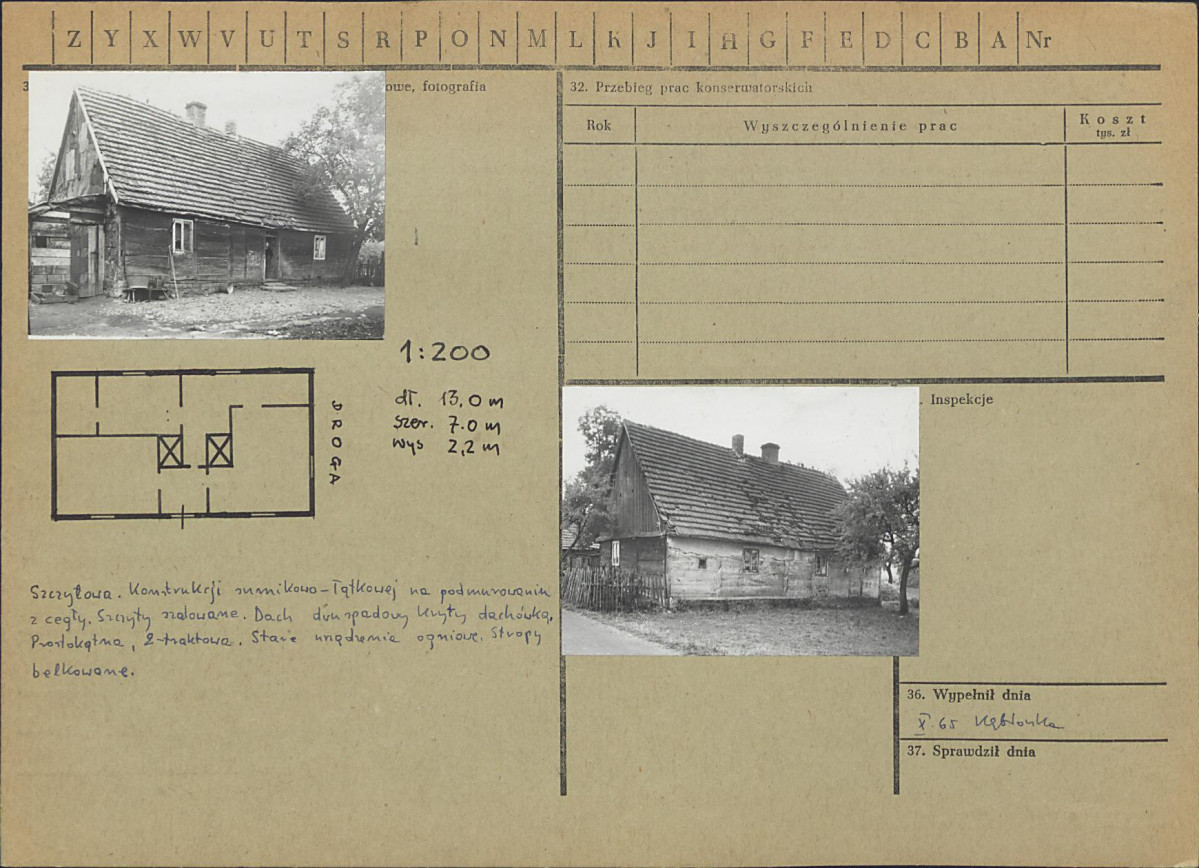 Z Y X W V U T S R P O N M L K J I H G F E D C B A Nr
3
owe, fotografia
32. Przebieg prac konserwatorskich
Rok
Wyszczególnienie prac
Koszt
tys. zł
1:200
dł. 13,0 m
szer. 7.0 m
wys 2,2 m
DROGA
. Inspekcje
Szczytowa. Konstrukcji sumikowo-łątkowej na podmurowaniu
z cegły. Szczyty szalowane. Dach dwuspadowy kryty dachówką.
Prostokątna, 2-traktowa. Stare urządzenia ogniowe. Stropy
belkowane.
36. Wypełnił dnia
X. 65
37. Sprawdził dnia